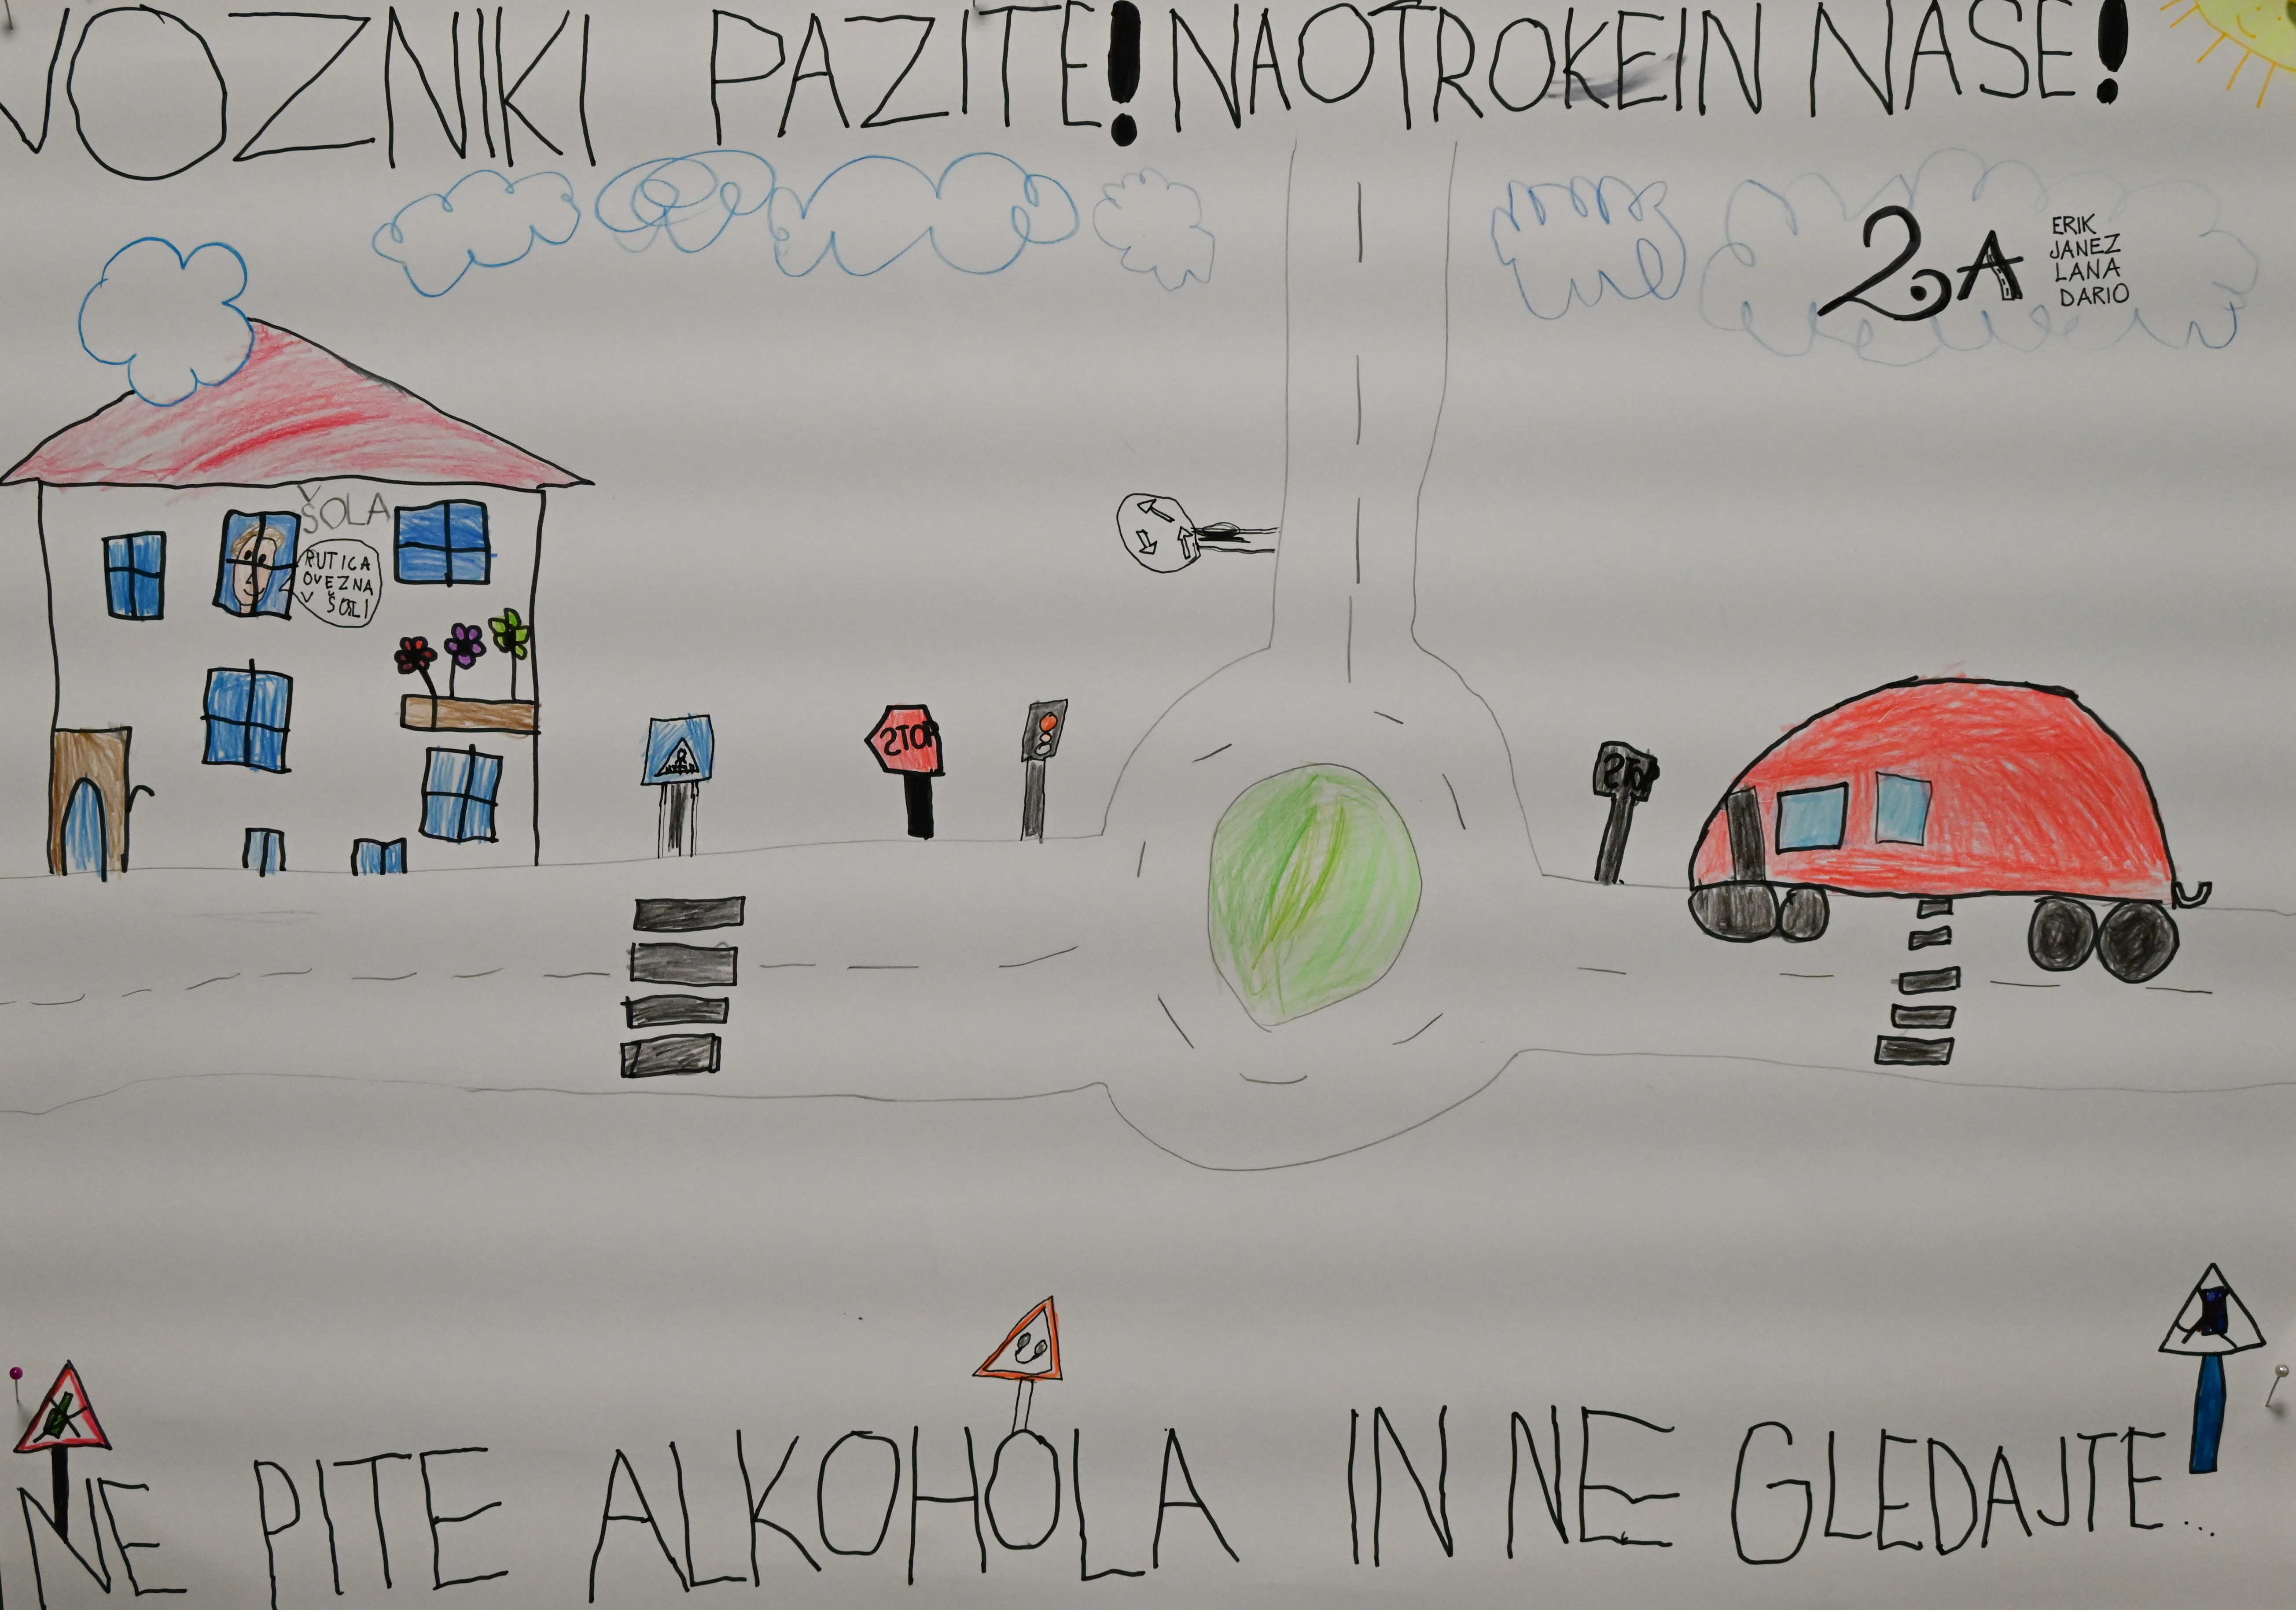 VOZNIKI PAZITE! NA OTROKE IN NASE!
2.A
ERIK
JANEZ
LANA
DARIO
ŠOLA
RUTICA
OVEZNA
V ŠOLI
STOP
STOP
NE PITE ALKOHOLA IN NE GLEDAJTE...